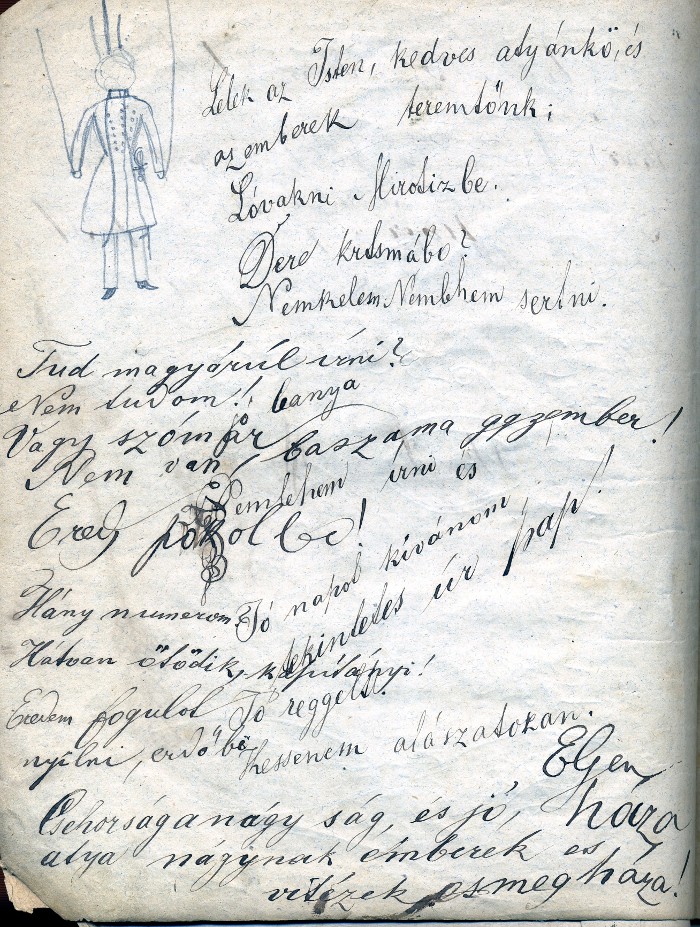 Lelek az Isten, kedves atyánkö, és
azemberek teremtőnk;
Lóvakni Mirotizbe.
Dere krtsmábo?
Nemkelem Nemlehem sertni.
Tud magyárúl irni?
Nem tudom! jo banya
Vagy szómár baszama gyzember!
Nem van
Nemlehem irni és
Ered pokolbe!
Hány numerom?
Jó napot kivánom
tekintetes úr pap!
Hátvan ötödik, kapitányi!
Jó reggelt!
Eredem fogulot
nyilni, erdőbe
Kessenem alászatokan.
Eljen
háza
Csehorsága nágy ság, és jó,
atya nágynak émberek es
vitézek es meg háza!